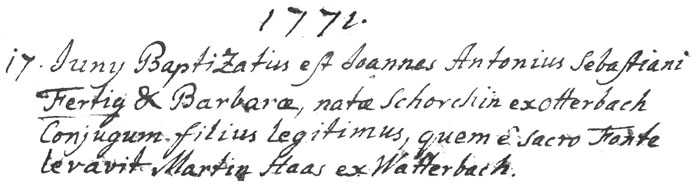 1771.
17. Juny Baptizatus est Joannes Antonius Sebastiani
Fertig & Barbaræ, natæ Schorchin ex otterbach
Conjugum filius legitimus, quem è sacro Fonte
levavit Martin Haas ex Watterbach.